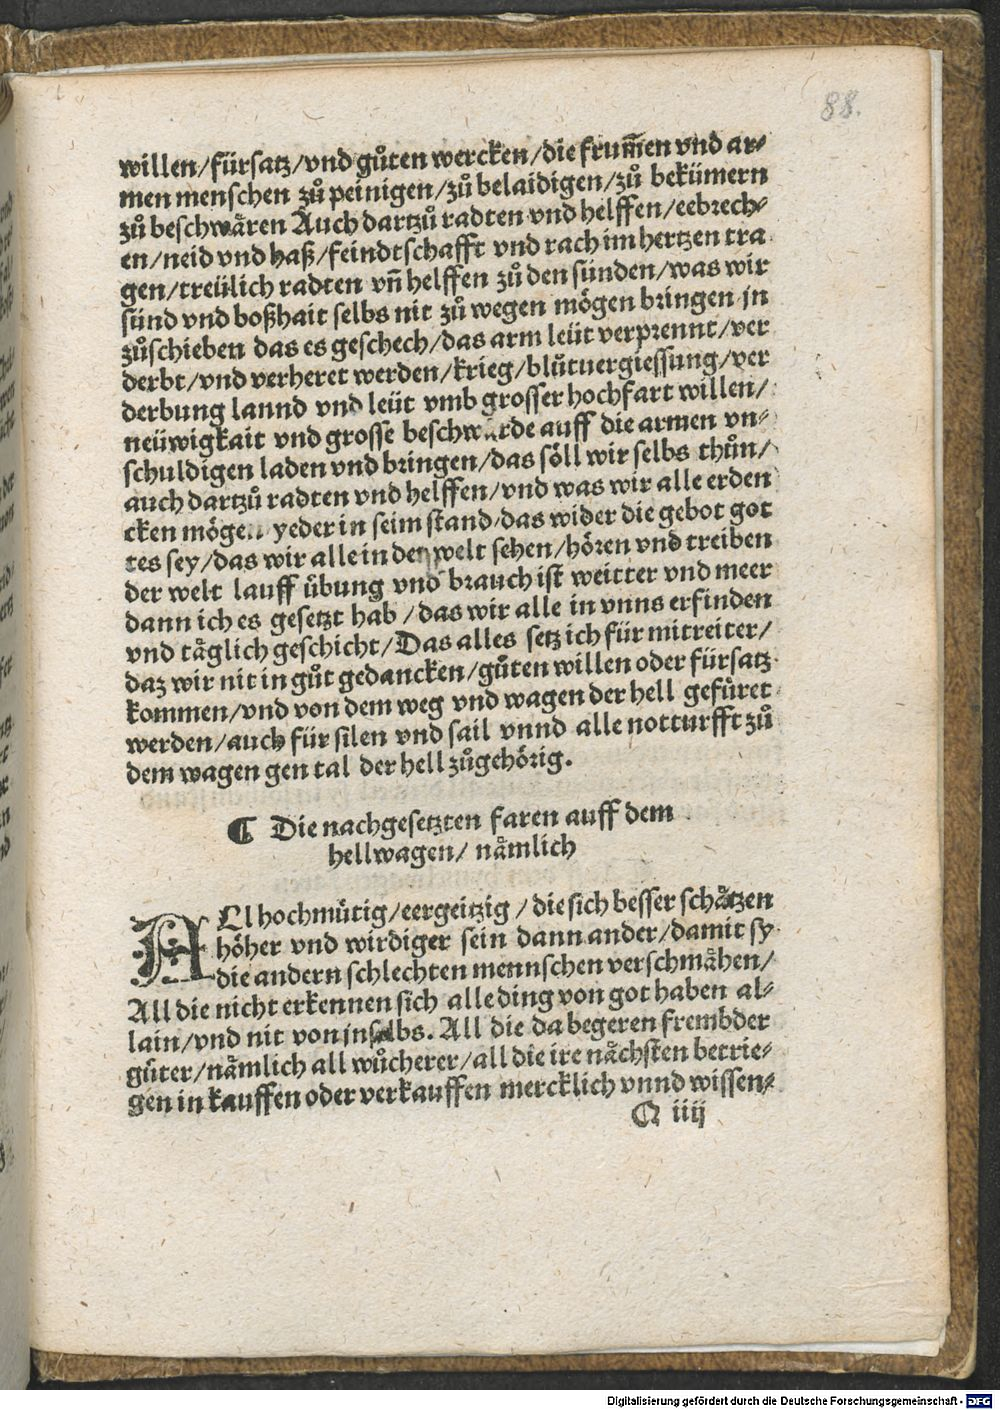 88.
willen/fürsatz/vnd gůten wercken/die frum̃en vnd ar⸗
men menschen zů peinigen/zů belaidigen/zů bekümern
zů beschwåren Auch dartzů radten vnd helffen/eebrech⸗
en/neid vnd haß/feindtschafft vnd rach im hertzen tra
gen/treülich radten vñ helffen zů den sünden/was wir
sünd vnd boßhait selbs nit zů wegen mögen bringen jn
zůschieben das es geschech/das arm leüt verprennt/ver
derbt/vnd verheret werden/krieg/blůtuergiessung/ver
derbung lannd vnd leüt vmb grosser hochfart willen/
neüwigkait vnd grosse beschwårde auff die armen vn⸗
schuldigen laden vnd bringen/das söll wir selbs thůn/
auch dartzů radten vnd helffen/vnd was wir alle erden
cken mögen yeder in seim stand/das wider die gebot got
tes sey/das wir alle in der welt sehen/hören vnd treiben
der welt lauff übung vnd brauch ist weitter vnd meer
dann ich es gesetzt hab/das wir alle in vnns erfinden
vnd tåglich geschicht/Das alles setz ich für mitreiter/
daz wir nit in gůt gedancken/gůten willen oder fürsatz
kommen/vnd von dem weg vnd wagen der hell gefüret
werden/auch für silen vnd sail vnnd alle notturfft zů
dem wagen gen tal der hell zůgehörig.
¶ Die nachgesetzten faren auff dem
hellwagen/ nåmlich
ALl hochmütig/eergeitzig/die sich besser schåtzen
höher vnd wirdiger sein dann ander/damit sy
die andern schlechten mennschen verschmåhen/
All die nicht erkennen sich alle ding von got haben al⸗
lain/vnd nit von jn selbs. All die da begeren frembder
güter/nåmlich all wůcherer/all die ire nåchsten betrie⸗
gen in kauffen oder verkauffen mercklich vnnd wissen⸗
Q iiij
Digitalisierung gefördert durch die Deutsche Forschungsgemeinschaft - DFG